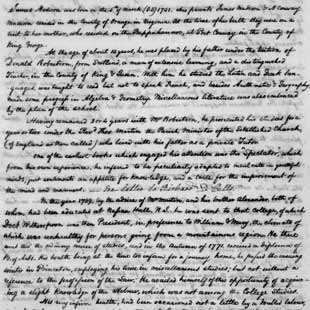 James Madison was born on the 5th of March (O.S.) 1751. His parents James Madison & Conway
Madison resided in the County of Orange in Virginia. At the time of his birth they were on a
visit to her mother, who resided on the Rappahannoc, at Port Conway in the County of
King George.
At the age of about he was placed by his father under the tuition of
Donald Robertson, from Scotland, a man of extensive learning, and a distinguished
Teacher, in the County of King & Queen. With him he studied the Latin and Greek lan-
guages, was taught to read but not to speak French, and besides Arithmetic & Geography,
made some progress in Algebra & Geometry. Miscellaneous literature was also embraced
by the plan of the school.
Having remained 3 or 4 years with Mr Robertson, he prosecuted his studies for a
year or two under the Revd Thos Martin the Parish Minister of the established Church,
(of England as then called) who lived with his father as a private Tutor.
One of the earliest books which engaged his attention was the Spectator, which
from his own experience, he inferred to be peculiarly adapted to inculcate in youthful
minds, just sentiments an appetite for knowledge, and a taste for the improvement of
the mind and manners. See letter to Richard D. Cutts
In the year 1769, by the advice of Mr Martin, and his brother Alexander both of
whom had been educated at Nassau Hall, N.J. he was sent to that college, of which
Doctr Witherspoon was then President, in preference to William & Mary, the climate of
which was unhealthy for persons going from a mountainous region. He there
went thro the ordinary course of studies, and in the Autumn of 1771 received a diploma of
his health being at the time too infirm for a journey home, he passed the ensuing
winter in Princeton, employing his time in miscellaneous studies; but not without a
reference to the profession of the Law. He availed himself of this opportunity of acquir-
ing a slight knowledge of the Hebrew, which was not among the College Studies.
His infirm health, had been occasioned not a little by a doubled labour,